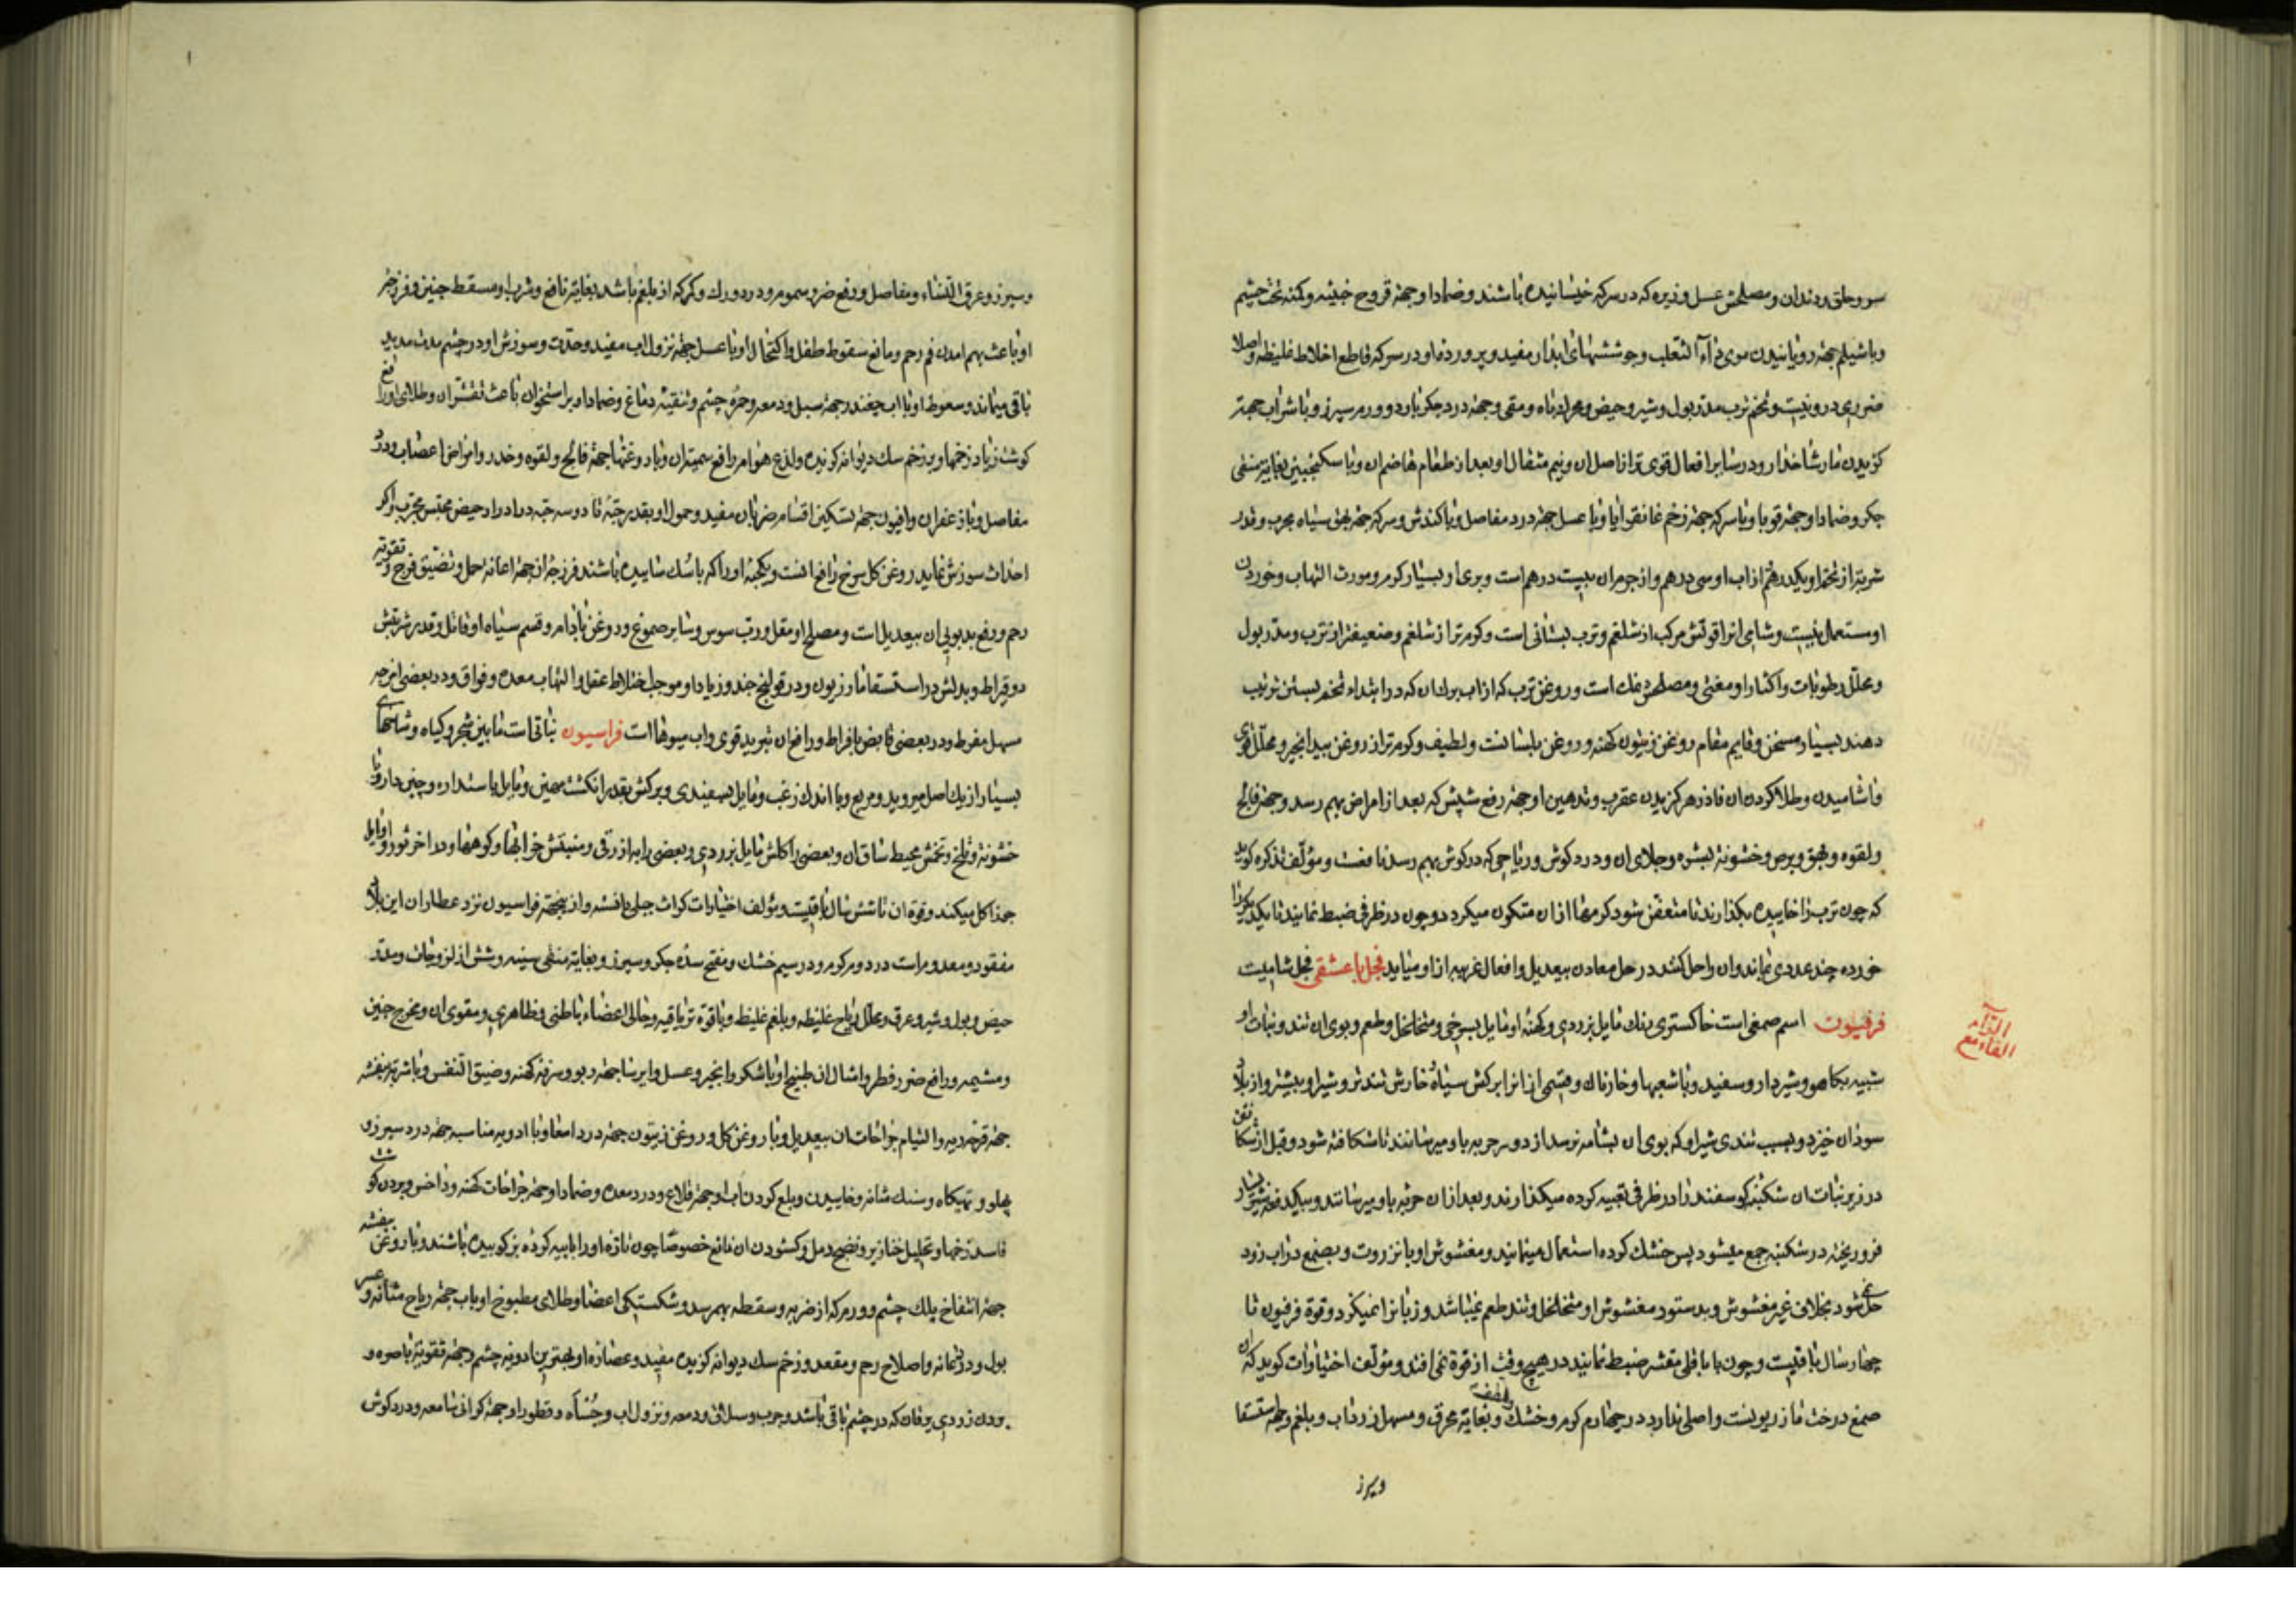 سر و حلق و دندان و مصلحش عسل و زیره که در سرکه خیسانیده باشند و ضماد او جهة قروح خبیثه و کمنه تحت چشم
و با شیلم جهة رویانیدن موی داء الثعلب و جوششهای ابدان مفید و پرورده او در سرکه قاطع اخلاط غلیظه و اصلا
ضرری درو نیست و تخم ترب مدر بول و شیر و حیض و محرک باه و مقی و جهة درد جکر بارد و ورم سپرز و با شراب جهة
کزیدن مار شاخدار و در سایر افعال قوی تر از اصل ان و نیم مثقال او بعد از طعام هاضم ان و با سکنجبین بغایة منقی
جکر و ضماد او جهة قوبا و با سرکه جهة زخم غانقرایا و با عسل جهة درد مفاصل و با کندش و سرکه جهة بهق سیاه مجرب و قدر
شربة از تخم او یکدرهم از اب او سی درهم و از جرم ان بیست درهم است و بری او بسیار کرم و مورث التهاب و خوردن
او مستعمل نیست و شامی انرا قوتش مرکب از شلغم و ترب بستانی است و کرم تر از شلغم و ضعیفتر از ترب و مدر بول
و محلل رطوبات و اکثار او مغثی و مصلحش نمک است و روغن ترب که از اب برک ان که در ابتداء تخم بستن ترتیب
دهند بسیار مسخن و قایم مقام روغن زیتون کهنه و روغن بلسانست و لطیف و کرم تر از روغن بیدانجیر و محلل قوی
و اشامیدن و طلا کردن ان فاذزهر کزیدن عقرب و تدهین او جهة رفع شپش که بعد از امراض بهم رسد و جهة فالج
و لقوه و بهق و برص و خشونة بشره و جلای ان و درد کوش و ریاحی که در کوش بهم رسد نافعست و مؤلف تذکره کوید
که چون ترب را خاییده بکذارند تا متعفن شود کرمها از ان متکون میکردد و چون در ظرفی ضبط نمایند تا یکدیکر را
خورده چند عددی نماند و ان را حل کنند در حل معادن بیعدیل و افعال غریبه از او میاید فجل باعشقی فجل شامیست
الفاء مع
الراء
فرفیون اسم صمغی است خاکستری رنک مایل بزردی و کهنه او مایل بسرخی و متخلخل و طعم و بوی ان تند و نبات او
شبیه بکاهو و شیردار و سفید و با شعبها و خارناک و قسمی از انرا برکش سیاه و خارش تندتر و شیر او بیشتر و از بلاد
سودان خیزد و بسبب تندی شیر او که بوی ان بشامه نرسد از دور حربه باو میرسانند تا شکافته شود و قبل از شکافتن
در زیر نبات ان شکنبه کوسفند را در ظرفی تعبیه کرده میکذارند و بعد از ان حربه باو میرسانند و بیکدفعه شیر بسیار
فرو ریخته در شکنبه جمع میشود پس خشک کرده استعمال مینمایند و مغشوش او با نزروت و بصمغ در اب زود
حل نمی شود بخلاف غیر مغشوش و بدستور مغشوش او متخلخل و تند طعم نمیباشد و زبانرا نمیکزد و قوة فرفیون تا
چهار سال باقیست و چون با باقلی مقشر ضبط نمایند در هیچ وقت از قوة نمی افتد و مؤلف اختیارات کوید که ان
صمغ درخت مازریونست و اصلی ندارد در چهارم کرم و خشک و لطیف و بغایة محرق و مسهل زرداب و بلغم و جهة استسقا
و سپرز
و سپرز و عرق النساء و مفاصل و رفع ضرر سموم و درد ورک و کمر که از بلغم باشد بغایة نافع و شرب او مسقط جنین و فرزجه
او باعث بهم امدن فم رحم و مانع سقوط طفل و اکتحال او با عسل جهة نزول اب مفید و حدت و سوزش او در چشم مدت مدید
باقی میماند و سعوط او با اب چغندر جهة سبل و دمعه و حمره چشم و تنقیه دماغ و ضماد او بر استخوان باعث تقشر ان و طلای او رافع
کوشت زیاد زخمها و بر زخم سک دیوانه کزیده و لذع هوام رافع سمیت ان و با روغنها جهة فالج و لقوه و خدر و امراض اعصاب و درد
مفاصل و با زعفران و افیون جهة تسکین اقسام ضربان مفید و حمول او بقدر حبه تا دو سه حبه در ادرار حیض محتبس مجرب و اکر
احداث سوزش نماید روغن کل سرخ رافع انست و یکحبه او را که با سک ساییده باشند فرزجه ان جهة اعانه حمل و تضییق فرج و تقویة
رحم و رفع بدبویی ان بیعدیل است و مصلح او مقل و رب سوس و سایر صموغ و روغن بادام و قسم سیاه او قاتل و قدر شربتش
دو قیراط و بدلش در استسقا مازریون و در قولنج جندو زیاد او موجب اختلاط عقل و التهاب معده و فواق و در بعضی امزجه
مسهل مفرط و در بعضی قابض بافراط و رافع ان تبرید قوی و اب میوها است فراسیون نباتی است مابین شجر و کیاه و شاخهای
بسیار از یک اصل میروید و مربع و با اندک زغب و مایل بسفیدی و برکش بقدر انکشت مهین و مایل باستداره و چین دار و با
خشونة و تلخ و تخمش محیط ساق ان و بعضی را کلش مایل بزردی و بعضی را به ازرقی و منبتش خرابها و کوهها و در اخر ثور و اوایل
جوزا کل میکند و قوة ان تا شش سال باقیست و مؤلف اختیارات کراث جبلی دانسته و از بیخته فراسیون نزد عطاران این بلاد
مفقود و معدوم است در دوم کرم و در سیم خشک و مفتح سده جکر و سپرز و بغایة منقی سینه و شش از لزوجات و مدر
حیض و بول و شیر و عرق و محلل ریاح غلیظه و بلغم غلیظ و با قوة تریاقیه و جالی اعضاء باطنی و ظاهری و مقوی ان و مخرج جنین
و مشیمه و رافع ضرر فطر و امثال ان طبیخ او با شکر و انجیر و عسل و ایرسا جهة ربو و سرفه کهنه و ضیق النفس و با شربة بنفشه
جهة قرحه ریه و التیام جراحات ان بیعدیل و با روغن کل و روغن زیتون جهة درد امعا و با ادویه مناسبه جهة درد سپرز و
پهلو و تهیکاه و سنک مثانه و خاییدن و بلع کردن اب او جهة قلاع و درد معده و ضماد او جهة جراحات کهنه و داخس و بردن کوشت
فاسد زخمها و تحلیل خنازیر و نضج دمل و کشودن ان نافع خصوصا چون تازه او را با پیه کرده بز کوبیده باشند و با روغن بنفشه
جهة انتفاخ پلک چشم و ورم که از ضربه و سقطه بهم رسد و شکستکی اعضا و طلای مطبوخ او باب جهة ریاح مثانه و عسر
بول و درد عانه و اصلاح رحم و مقعد و زخم سک دیوانه کزیده مفید و عصاره او بهترین ادویه چشم و جهة تقویة باصره و
بردن زردی یرقان که در چشم باقی باشد و جرب و سلاق و دمعه و نزول اب و جساء و قطور او جهة کرانی سامعه و درد کوش